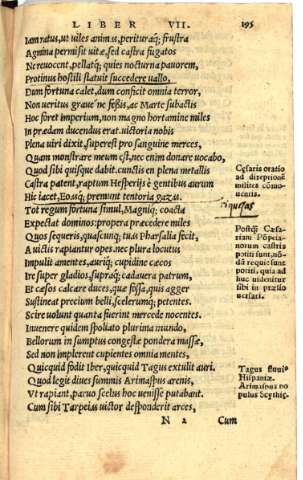 LIBER VII. 195
Iam ratus, ut uiles animas, perituraq; frustra
Agmina permisit uitæ, sed castra fugatos
Ne reuocent, pellatq; quies nocturna pauorem,
Protinus hostili statuit succedere uallo,
Dum fortuna calet, dum conficit omnia terror,
Non ueritus graue ne fessis, ac Marte subactis
Hoc foret imperium, non magno hortamine miles
In prædam ducendus erat. uictoria nobis
Plena uiri dixit, superest pro sanguine merces,
Quam monstrare meum est, nec enim donare uocabo,
Quod sibi quisque dabit. cunctis en plena metallis
Castra patent, raptum Hesperijs è gentibus aurum
Hic iacet, Eoasq; premunt tentoria gazas.
Tot regum fortuna simul, Magniq; coacta
Expectat dominos: propera præcedere miles
Quos sequeris, quascunq; tuas Pharsalia fecit,
A uictis rapiuntur opes. nec plura locutus
Impulit amentes, auriq; cupidine cæcos
Ire super gladios, supraq; cadauera patrum,
Et cæsos calcare duces, quæ fossa, quis agger
Sustineat precium belli, scelerumq; petentes.
Scire uolunt quanta fuerint mercede nocentes.
Inuenere quidem spoliato plurima mundo,
Bellorum in sumptus congestæ pondera massæ,
Sed non implerent cupientes omnia mentes,
Quicquid fodit Iber, quicquid Tagus extulit auri.
Quod legit diues summis Arimaspus arenis,
Vt rapiant, paruo scelus hoc uenisse putabant.
Cum sibi Tarpeias uictor desponderit arces,
N 2 Cum
Cæsaris oratio
ad direptionem
milites cōmo-
uentis.
riquezas
Postq̃ Cæsa-
riani Pōpeia-
norum castra
potiti sunt, nō-
dū requie sunt
potiti, quia ad
huc uidentur
sibi in præsio
uersari.
Tagus fluui9
Hispaniæ.
Arimaspus po
pulus Scythiç.